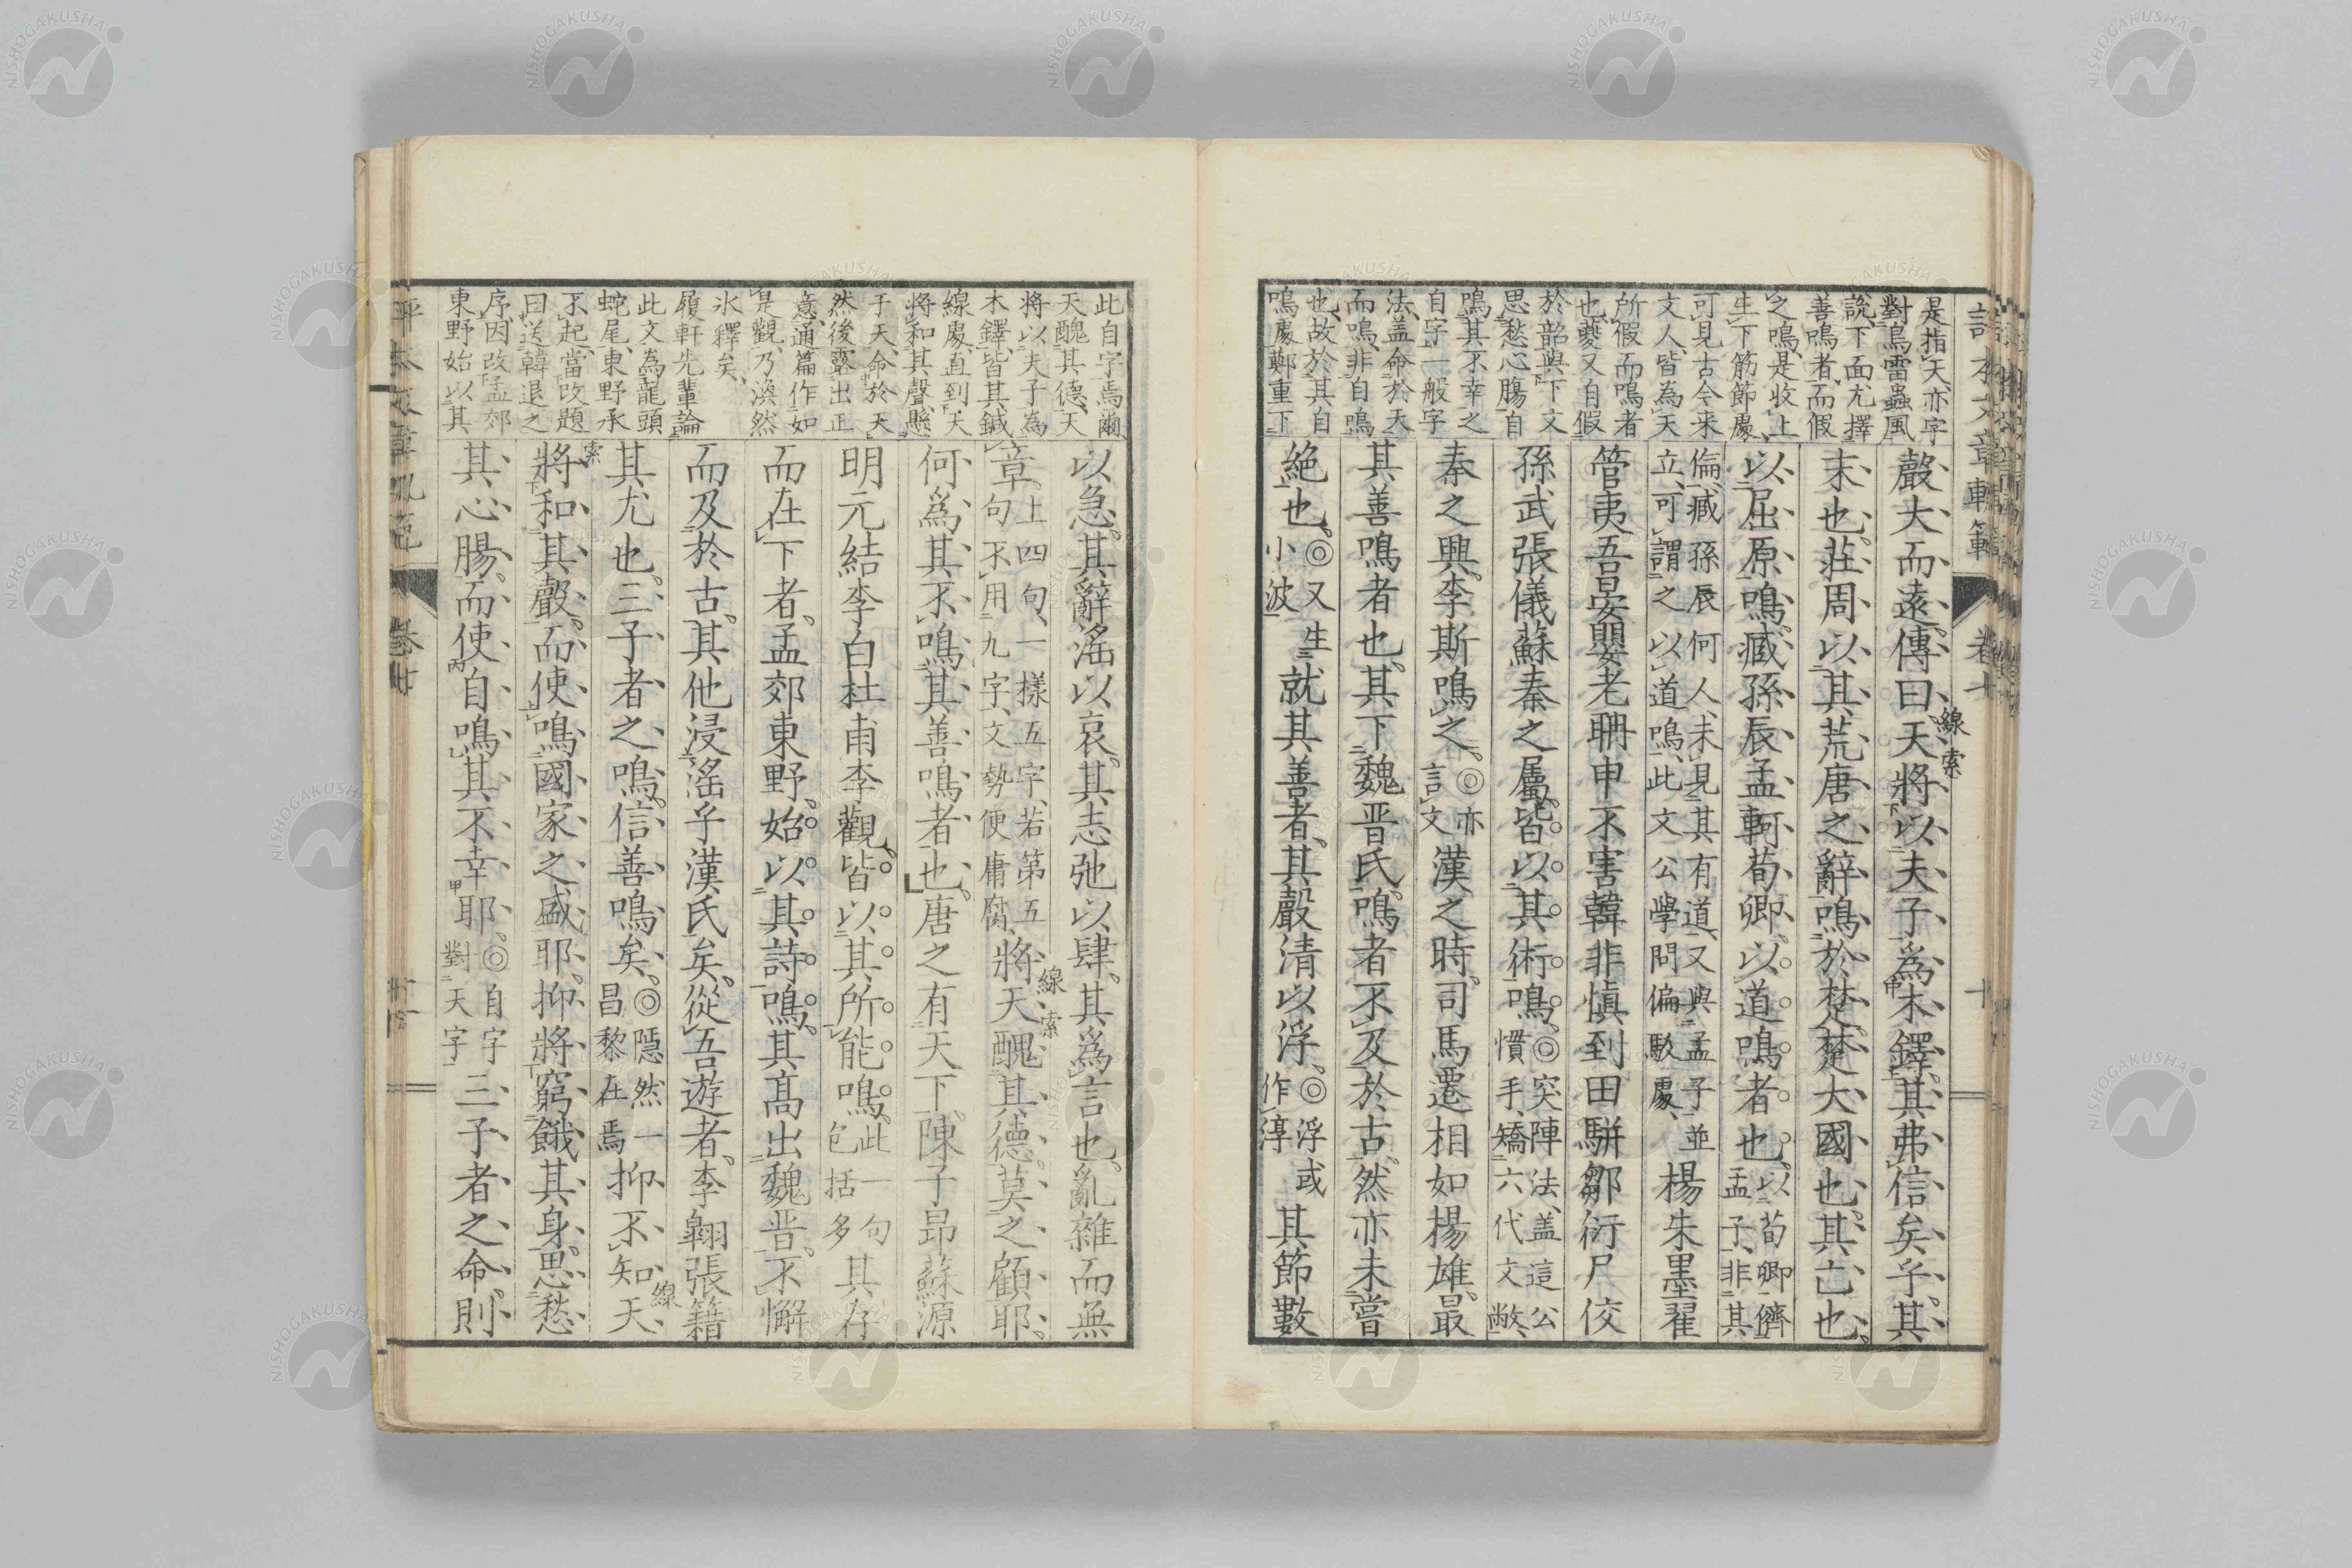 是指天亦字
對鳥雷蟲風
說下面尤擇
善鳴者而假
之鳴是收上
生下筋節處
可見古今来
文人皆為天
所假而鳴者
也夔又自假
於韶與下文
思愁心膓自
鳴其不幸之
自字一般字
法盖命於天
而鳴非自鳴
也故於其自
鳴處鄭重下
聲大而遠傳曰天將以夫子爲木鐸其弗信矣乎其
線索
末也莊周以其荒唐之辭鳴於楚楚大國也其亡也
以屈原鳴臧孫辰孟軻荀卿以道鳴者也以荀卿儕
孟子非其
倫臧孫辰何人未見其有道又與孟子並
立可謂之以道鳴此文公學問偏駁處
楊朱墨翟
管夷吾晏嬰老聃申不害韓非慎到田駢鄒衍尸佼
孫武張儀蘇秦之屬皆以其術鳴◎突陣法盖這公
慣手矯六代文敝
秦之興李斯鳴之◎亦
言文
漢之時司馬遷相如楊雄最
其善鳴者也其下魏晋氏鳴者不及於古然亦未嘗
絕也◎又生
小波
就其善者其聲清以浮◎浮或
作淳
其節數
此自字焉爾
天醜其德天
將以夫子為
木鐸皆其鍼
線處直到天
將和其聲懸
于天命於天
然後露出正
意通篇作如
是觀乃渙然
氷釋矣
履軒先輩論
此文為龍頭
蛇尾東野承
不起當改題
曰送韓退之
序因改孟郊
東野始以其
以急其辭滛以哀其志弛以肆其爲言也亂雜而無
章上四句一樣五字若第五
句不用九字文勢便庸腐
將天醜其德莫之顧耶
線索
何爲其不鳴其善鳴者也唐之有天下陳子昻蘇源
明元結李白杜甫李觀皆以其所能鳴此一句
包括多
其存
而在下者孟郊東野始以其詩鳴其髙出魏晋不懈
而及於古其他浸滛乎漢氏矣從吾遊者李翱張籍
其尤也三子者之鳴信善鳴矣◎隠然一
昌黎在焉
抑不知天
線索
將和其聲而使鳴國家之盛耶抑將窮餓其身思愁
其心腸而使自鳴其不幸耶◎自字
對天字
三子者之命則